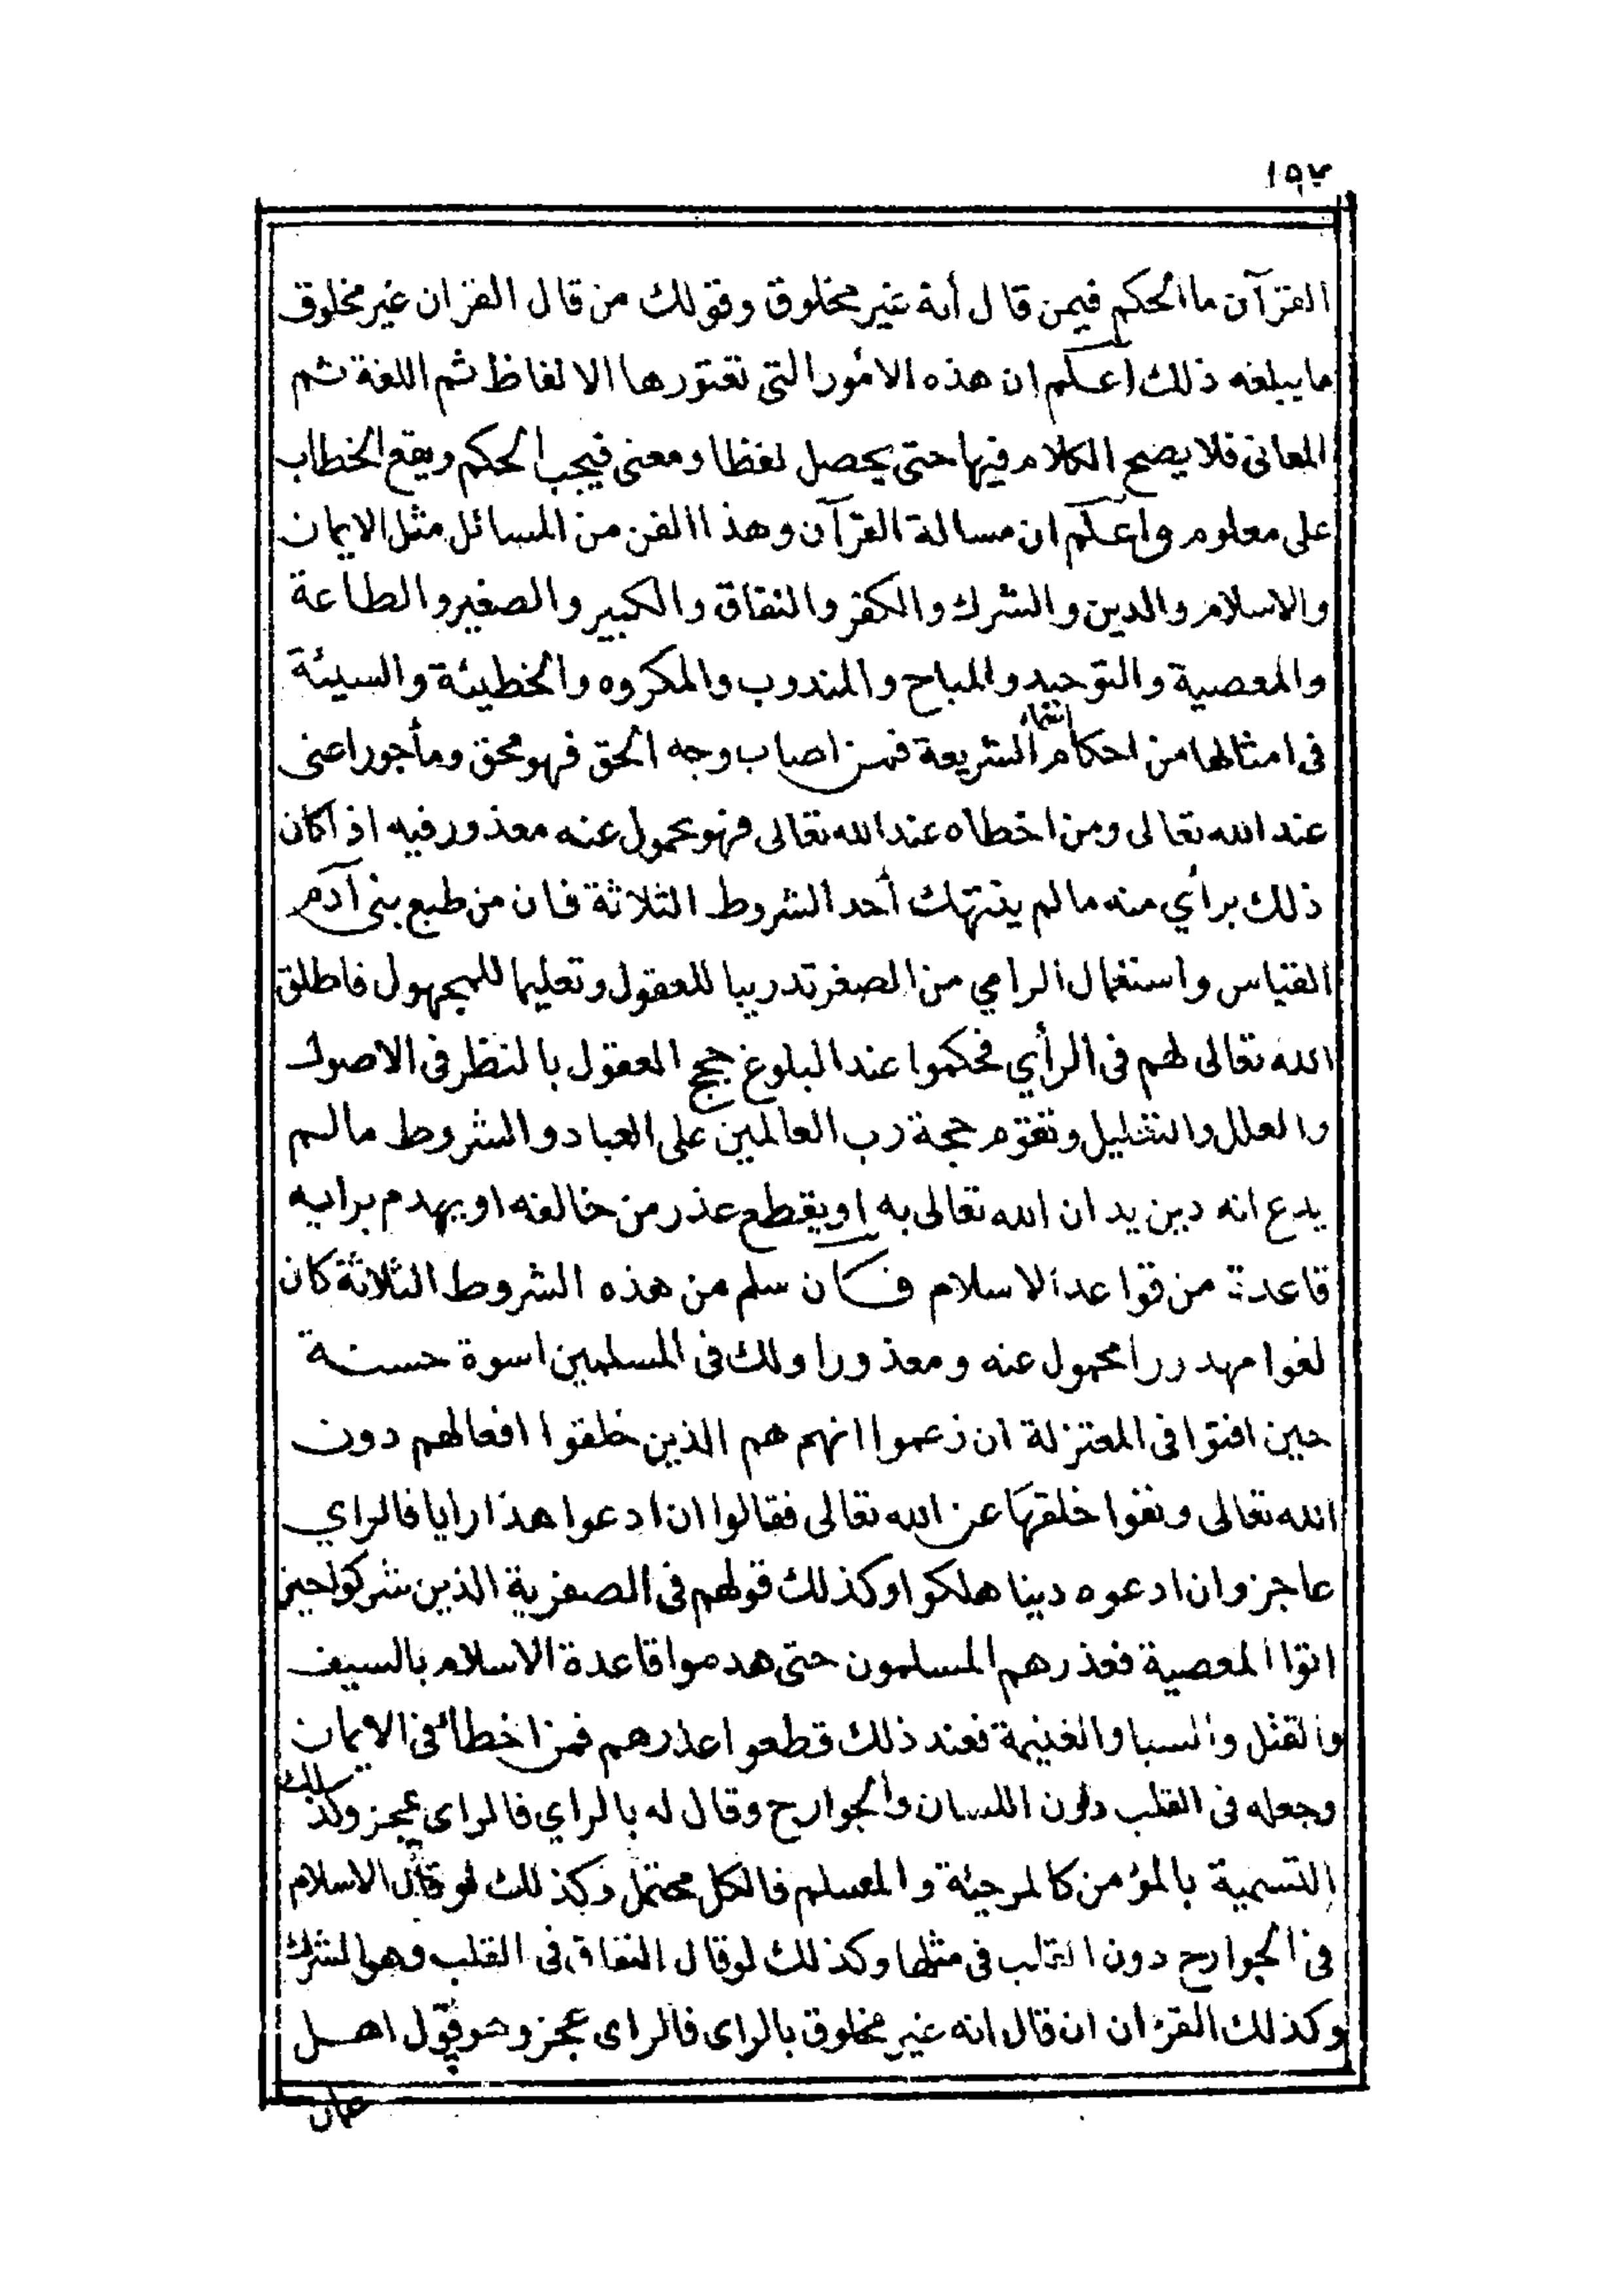 ١٩٧
القرآن ما الحكم فيمن قال أنه غير مخلوق وقولك من قال القران غير مخلوق
ما يبلغه ذلك اعلم ان هذه الامور التى تعتورها الالفاظ ثم اللغة ثم
المعانى فلا يصح الكلام فيها حتى يحصل لفظا ومعنى فيجب الحكم ويقع الخطاب
على معلوم واعلم ان مسالة القرآن وهذا الفن من المسائل مثل الايمان
والاسلام والدين والشرك والكفر والنفاق والكبير والصغير والطاعة
والمعصية والتوحيد والمباح والمندوب والمكروه والخطيئة والسيئة
فى امثالها من احكام الشريعة فمن اصاب وجه الحق فهو محق ومأجور اعنى
عند الله تعالى ومن اخطاه عند الله تعالى فهو محمول عنه معذور فيه اذا كان
ذلك برأي منه ما لم ينتهك أحد الشروط الثلاثة فان من طبع بنى آدم
القياس واستعمال الراي من الصغر تدريبا للعقول وتعليما للمجهول فاطلق
الله تعالى لهم فى الرأي فحكموا عند البلوغ حجج العقول بالنظر فى الاصول
والعلل والتعليل وتقوم حجة رب العالمين على العباد والشروط ما لم
يدع انه دين يدان الله تعالى به او يقطع عذر من خالفه او يهدم برايه
قاعدة من قواعد الاسلام فكان سلم من هذه الشروط الثلاثة كان
لغوا مهدررا محمول عنه ومعذورا ولك فى المسلمين اسوة حسنة
حين افتوا فى المعتزلة ان زعموا انهم هم الذين خلقوا افعالهم دون
الله تعالى ونفوا خلقها عن الله تعالى فقالوا ان ادعوا هذا رايا فالراي
عاجز وان ادعوه دينا هلكوا وكذلك قولهم فى الصفرية الذين شركوا حين
اتوا المعصية فعذرهم المسلمون حتى هدموا قاعدة الاسلام بالسيف
والقتل والسبا والغنيمة فعند ذلك قطعوا عذرهم فمن اخطأ فى الايمان
وجعله فى القلب دون اللسان والجوارح وقال له بالراي فالراى عجز وكذلك
التسمية بالمؤمن كالمرجئة والمسلم فالكل محتمل وكذلك لو قال الاسلام
فى الجوارح دون القلب فى مثلها وكذلك لو قال النفاق فى القلب وهو الشرك
وكذلك القران ان قال انه غير مخلوق بالراى فالراى عجز وهو قول اهل
عمان